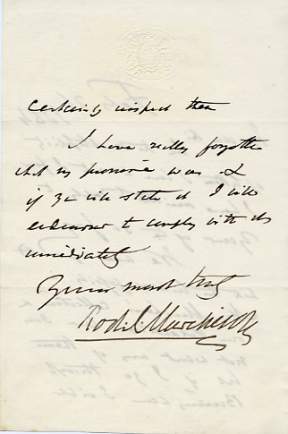 certainly inspect them
I have really forgotten
what my promise was &
if you will state it I will
endeavour to comply with it
immediately
Yours most truly
Rod. I. Murchison